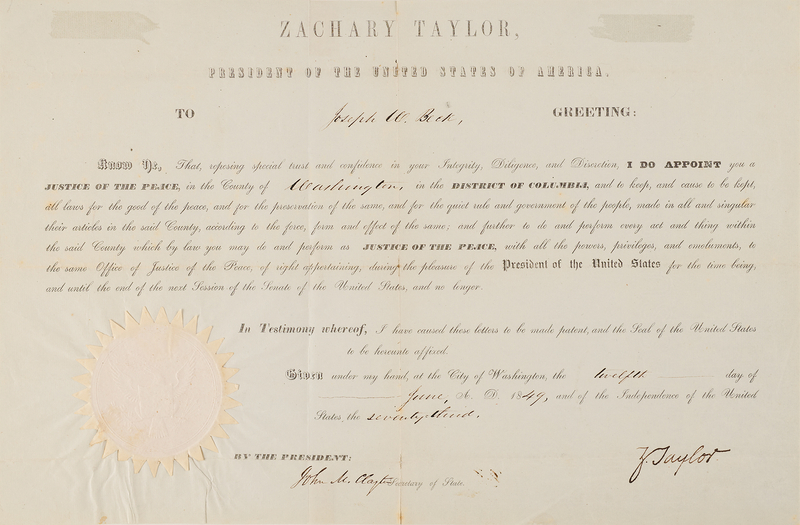 ZACHARY TAYLOR,
PRESIDENT OF THE UNITED STATES OF AMERICA.
TO Joseph W. Beck, GREETING:
Know Ye, That, reposing special trust and confidence in your Integrity, Diligence, and Discretion, I DO APPOINT you a
JUSTICE OF THE PEACE, in the County of Washington, in the DISTRICT OF COLUMBIA, and to keep, and cause to be kept,
all laws for the good of the peace, and for the preservation of the same, and for the quiet rule and government of the people, made in all and singular
their articles in the said County, according to the force, form and effect of the same; and further to do and perform every act and thing within
the said County which by law you may do and perform as JUSTICE OF THE PEACE, with all the powers, privileges, and emoluments, to
the same Office of Justice of the Peace, of right appertaining, during the pleasure of the President of the United States for the time being,
and until the end of the next Session of the Senate of the United States, and no longer.
In Testimony whereof, I have caused these letters to be made patent, and the Seal of the United States
to be hereunto affixed.
Given under my hand, at the City of Washington, the twelfth day of
June, A. D. 1849, and of the Independence of the United
States, the seventy third.
BY THE PRESIDENT:
Z. Taylor
John M. Clayton Secretary of State.